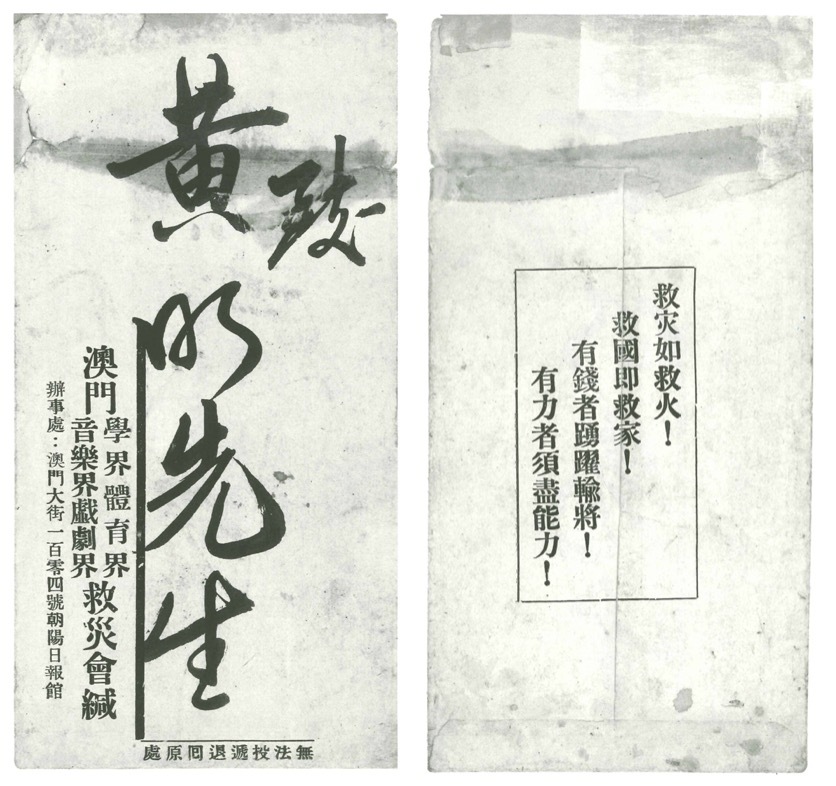 黄致
明先生
澳門學界體育界
音樂界戲劇界救災會緘
辦事處：澳門大街一百零四號朝陽日報館
無法投遞退囘原處
救灾如救火！
救國即救家！
有錢者踴躍輸將！
有力者須盡能力！